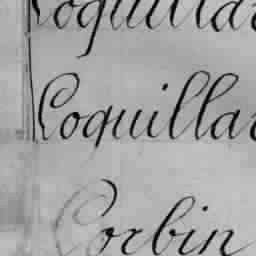 Coquillar
Coquillar
Corbin